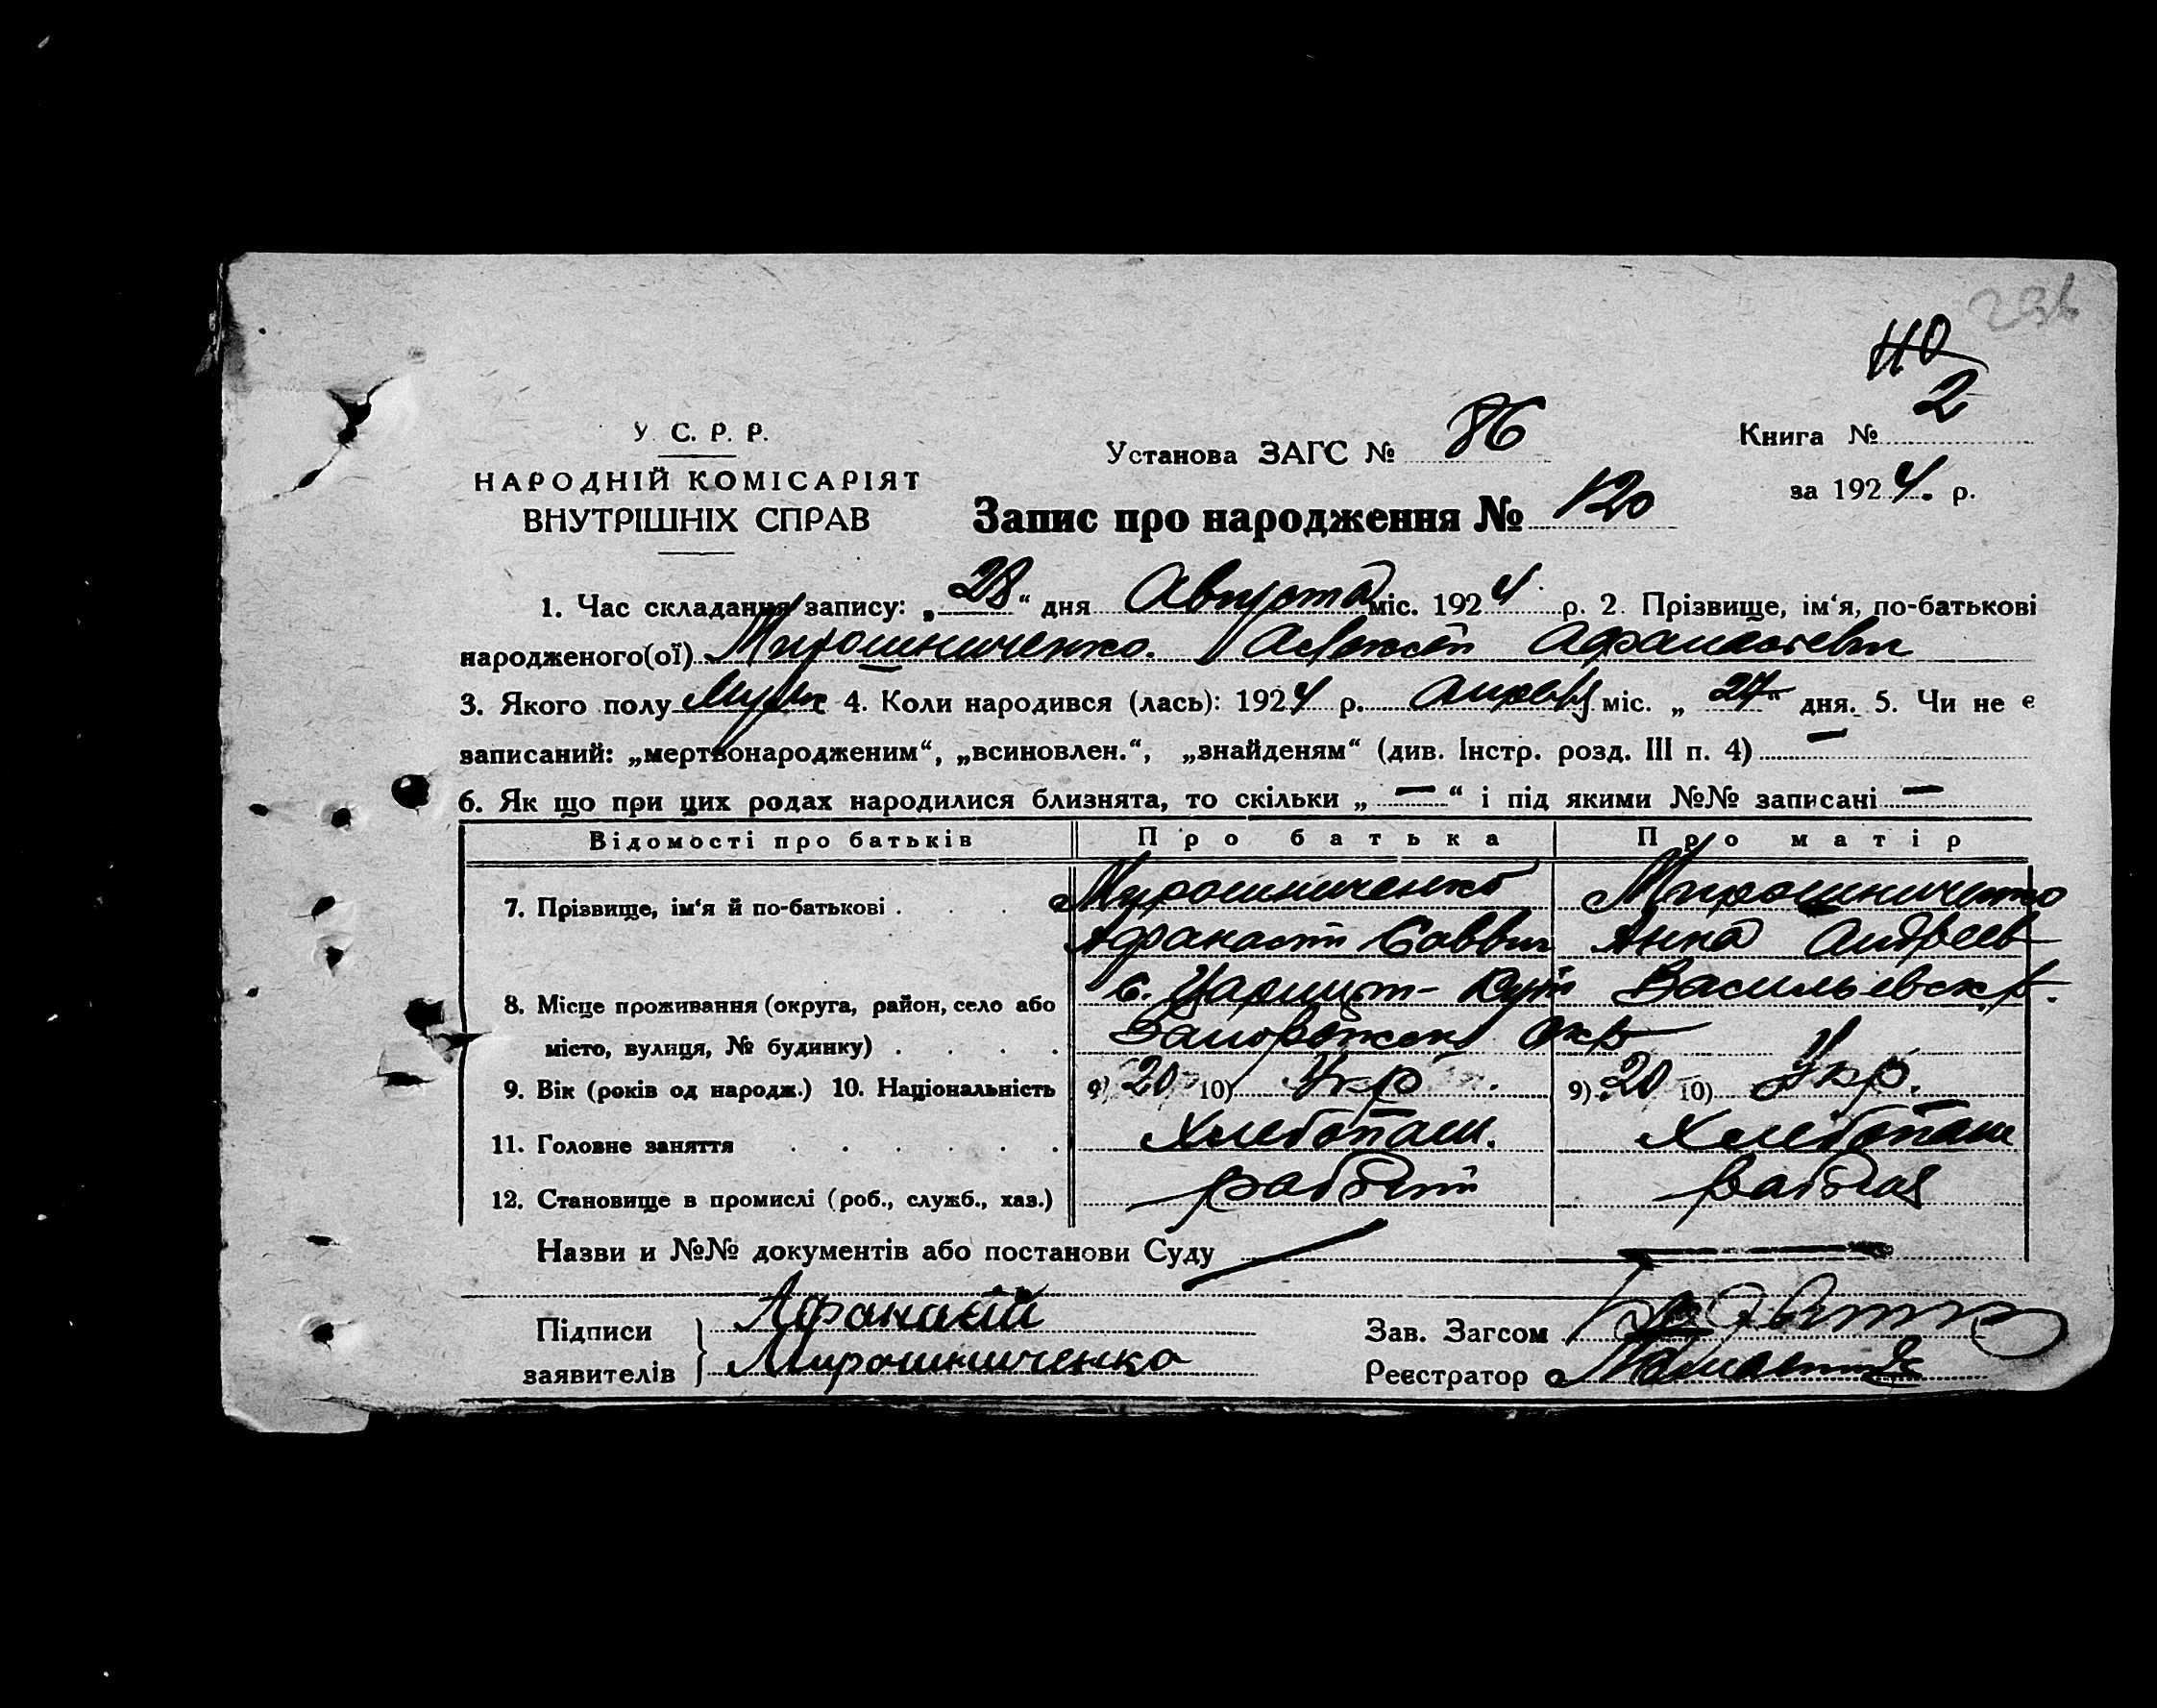 110
У. С. Р. Р.
НАРОДНІЙ КОМІСАРІЯТ
ВНУТРІШНІХ СПРАВ
Установа ЗАГС № 86
Книга № 2
за 1924. р.
Запис про народження № 120
1. Час складання запису: „28“ дня Августа міс. 1924 р. 2. Прізвище, ім‘я, по-батькові
народженого(ої) Мирошниченко. Алексей Афанасьевич
3. Якого полу Муж 4. Коли народився (лась): 1924 р. Апреля міс. „27“ дня. 5. Чи не є
записаний: „мертвонародженим“, „всиновлен.“, „знайденям“ (див. Інстр. розд. III п. 4) —
6. Як що при цих родах народилися близнята, то скільки „—“ і під якими №№ записані —
Відомості про батьків Про батька Про матір
7. Прізвище, ім‘я й по-батькові . . . . Мирошниченко Мирошниченко
Афанасий Саввич Анна Андреев
8. Місце проживання (округа, район, село або с. Царицын-Кут Васильевск. р.
місто, вулиця, № будинку) . . . . Запорожской Окр
9. Вік (років од народж.) 10. Національність 9) 20 10) Укр 9) 20 10) Укр.
11. Головне заняття . . . . . . Хлебопаш. Хлебопаш
12. Становище в промислі (роб., служб., хаз.) рабочий рабочая
Назви и №№ документів або постанови Суду
Підписи Афанасій
заявителів Мирошниченко
Зав. Загсом
Реєстратор